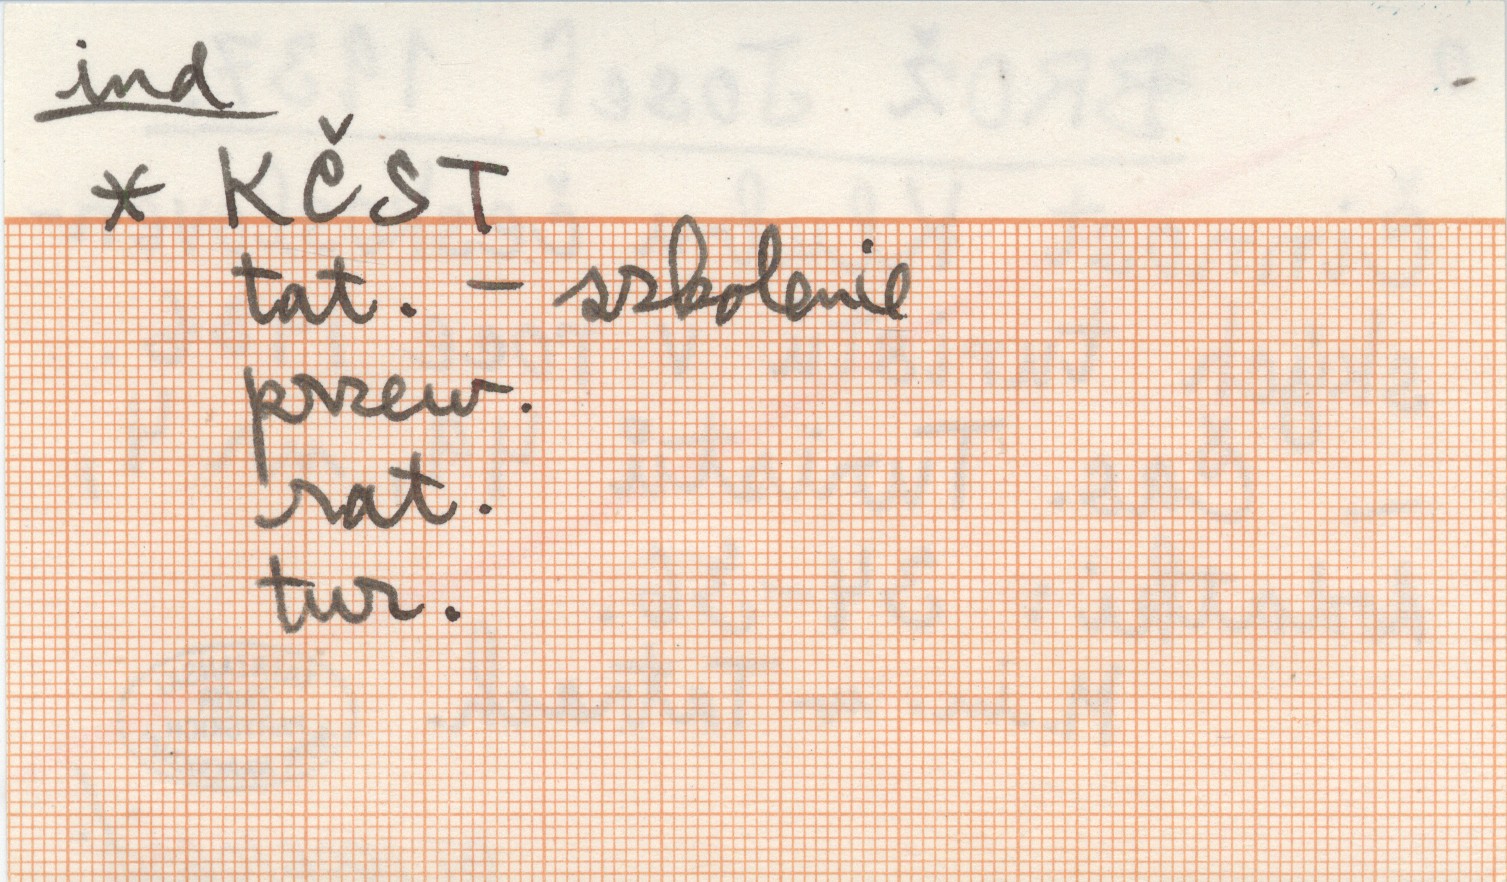 ind
* KČST
tat. - szkolenie
przew.
rat.
tur.